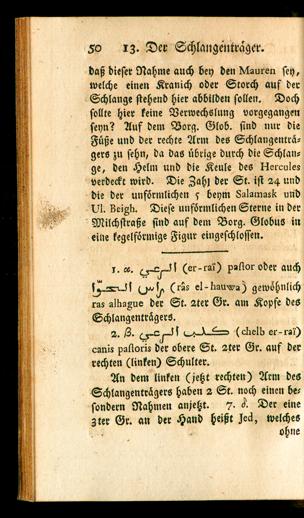 50 13. Der Schlangenträger.
daß dieser Nahme auch bey den Mauren sey,
welche einen Kranich oder Storch auf der
Schlange stehend hier abbilden sollen. Doch
sollte hier keine Verwechslung vorgegangen
seyn? Auf dem Borg. Glob. sind nur die
Füße und der rechte Arm des Schlangenträ-
gers zu sehn, da das übrige durch die Schlan-
ge, den Helm und die Keule des Hercules
verdeckt wird. Die Zahl der St. ist 24 und
die der unförmlichen 5 beym Salamask und
Ul. Beigh. Diese unförmlichen Sterne in der
Milchstraße sind auf dem Borg. Globus in
eine kegelförmige Figur eingeschlossen.
1. α. الرعي (er-raï) pastor oder auch
راس الحوّا (râs el-hauwa) gewöhnlich
ras alhague der St. 2ter Gr. am Kopfe des
Schlangenträgers.
2. β. كلب الرعي (chelb er-raï)
canis pastoris der obere St. 2ter Gr. auf der
rechten (linken) Schulter.
An dem linken (jetzt rechten) Arm des
Schlangenträgers haben 2 St. noch einen be-
sondern Nahmen anjetzt. 7. δ. Der eine
3ter Gr. an der Hand heißt Jed, welches
ohne